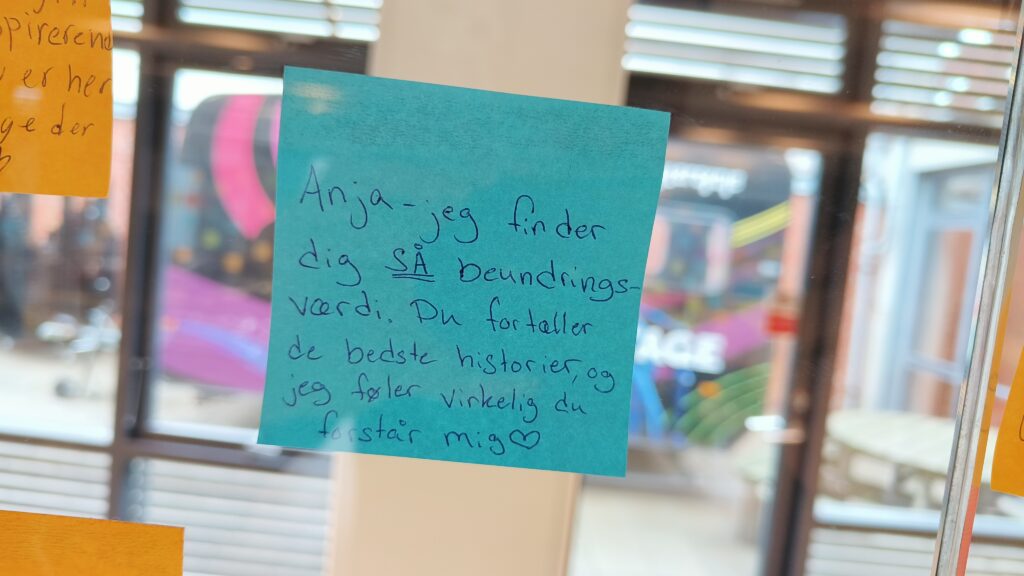 pirerend
er her
ge der
Anja-jeg finder
dig SÅ beundrings-
værdi. Du fortæller
de bedste historier, og
jeg føler virkelig du
forstår mig♡
AGE